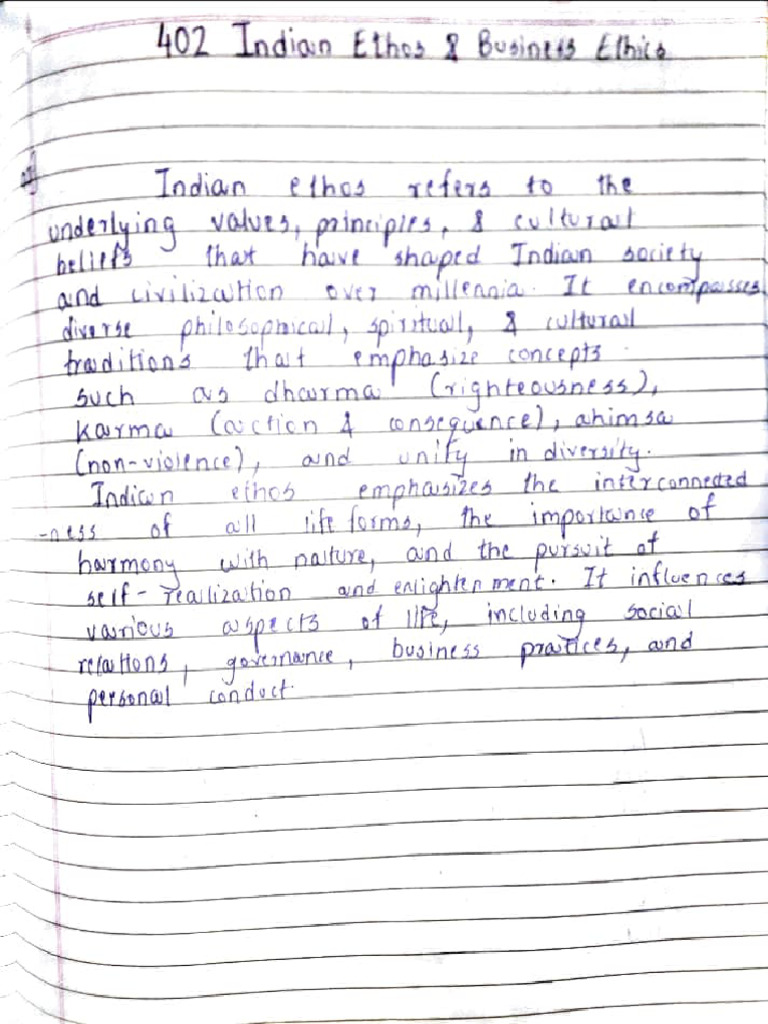 402 Indian Ethos & Business Ethics
Indian ethos refers to the
underlying values, principles, & cultural
beliefs that have shaped Indian society
and civilization over millennia. It encompasses
diverse philosophical, spiritual, & cultural
traditions that emphasize concepts
such as dharma (righteousness),
karma (action & consequence), ahimsa
(non-violence), and unity in diversity.
Indian ethos emphasizes the interconnected
-ness of all life forms, the importance of
harmony with nature, and the pursuit of
self-realization and enlightenment. It influences
various aspects of life, including social
relations, governance, business practices, and
personal conduct.